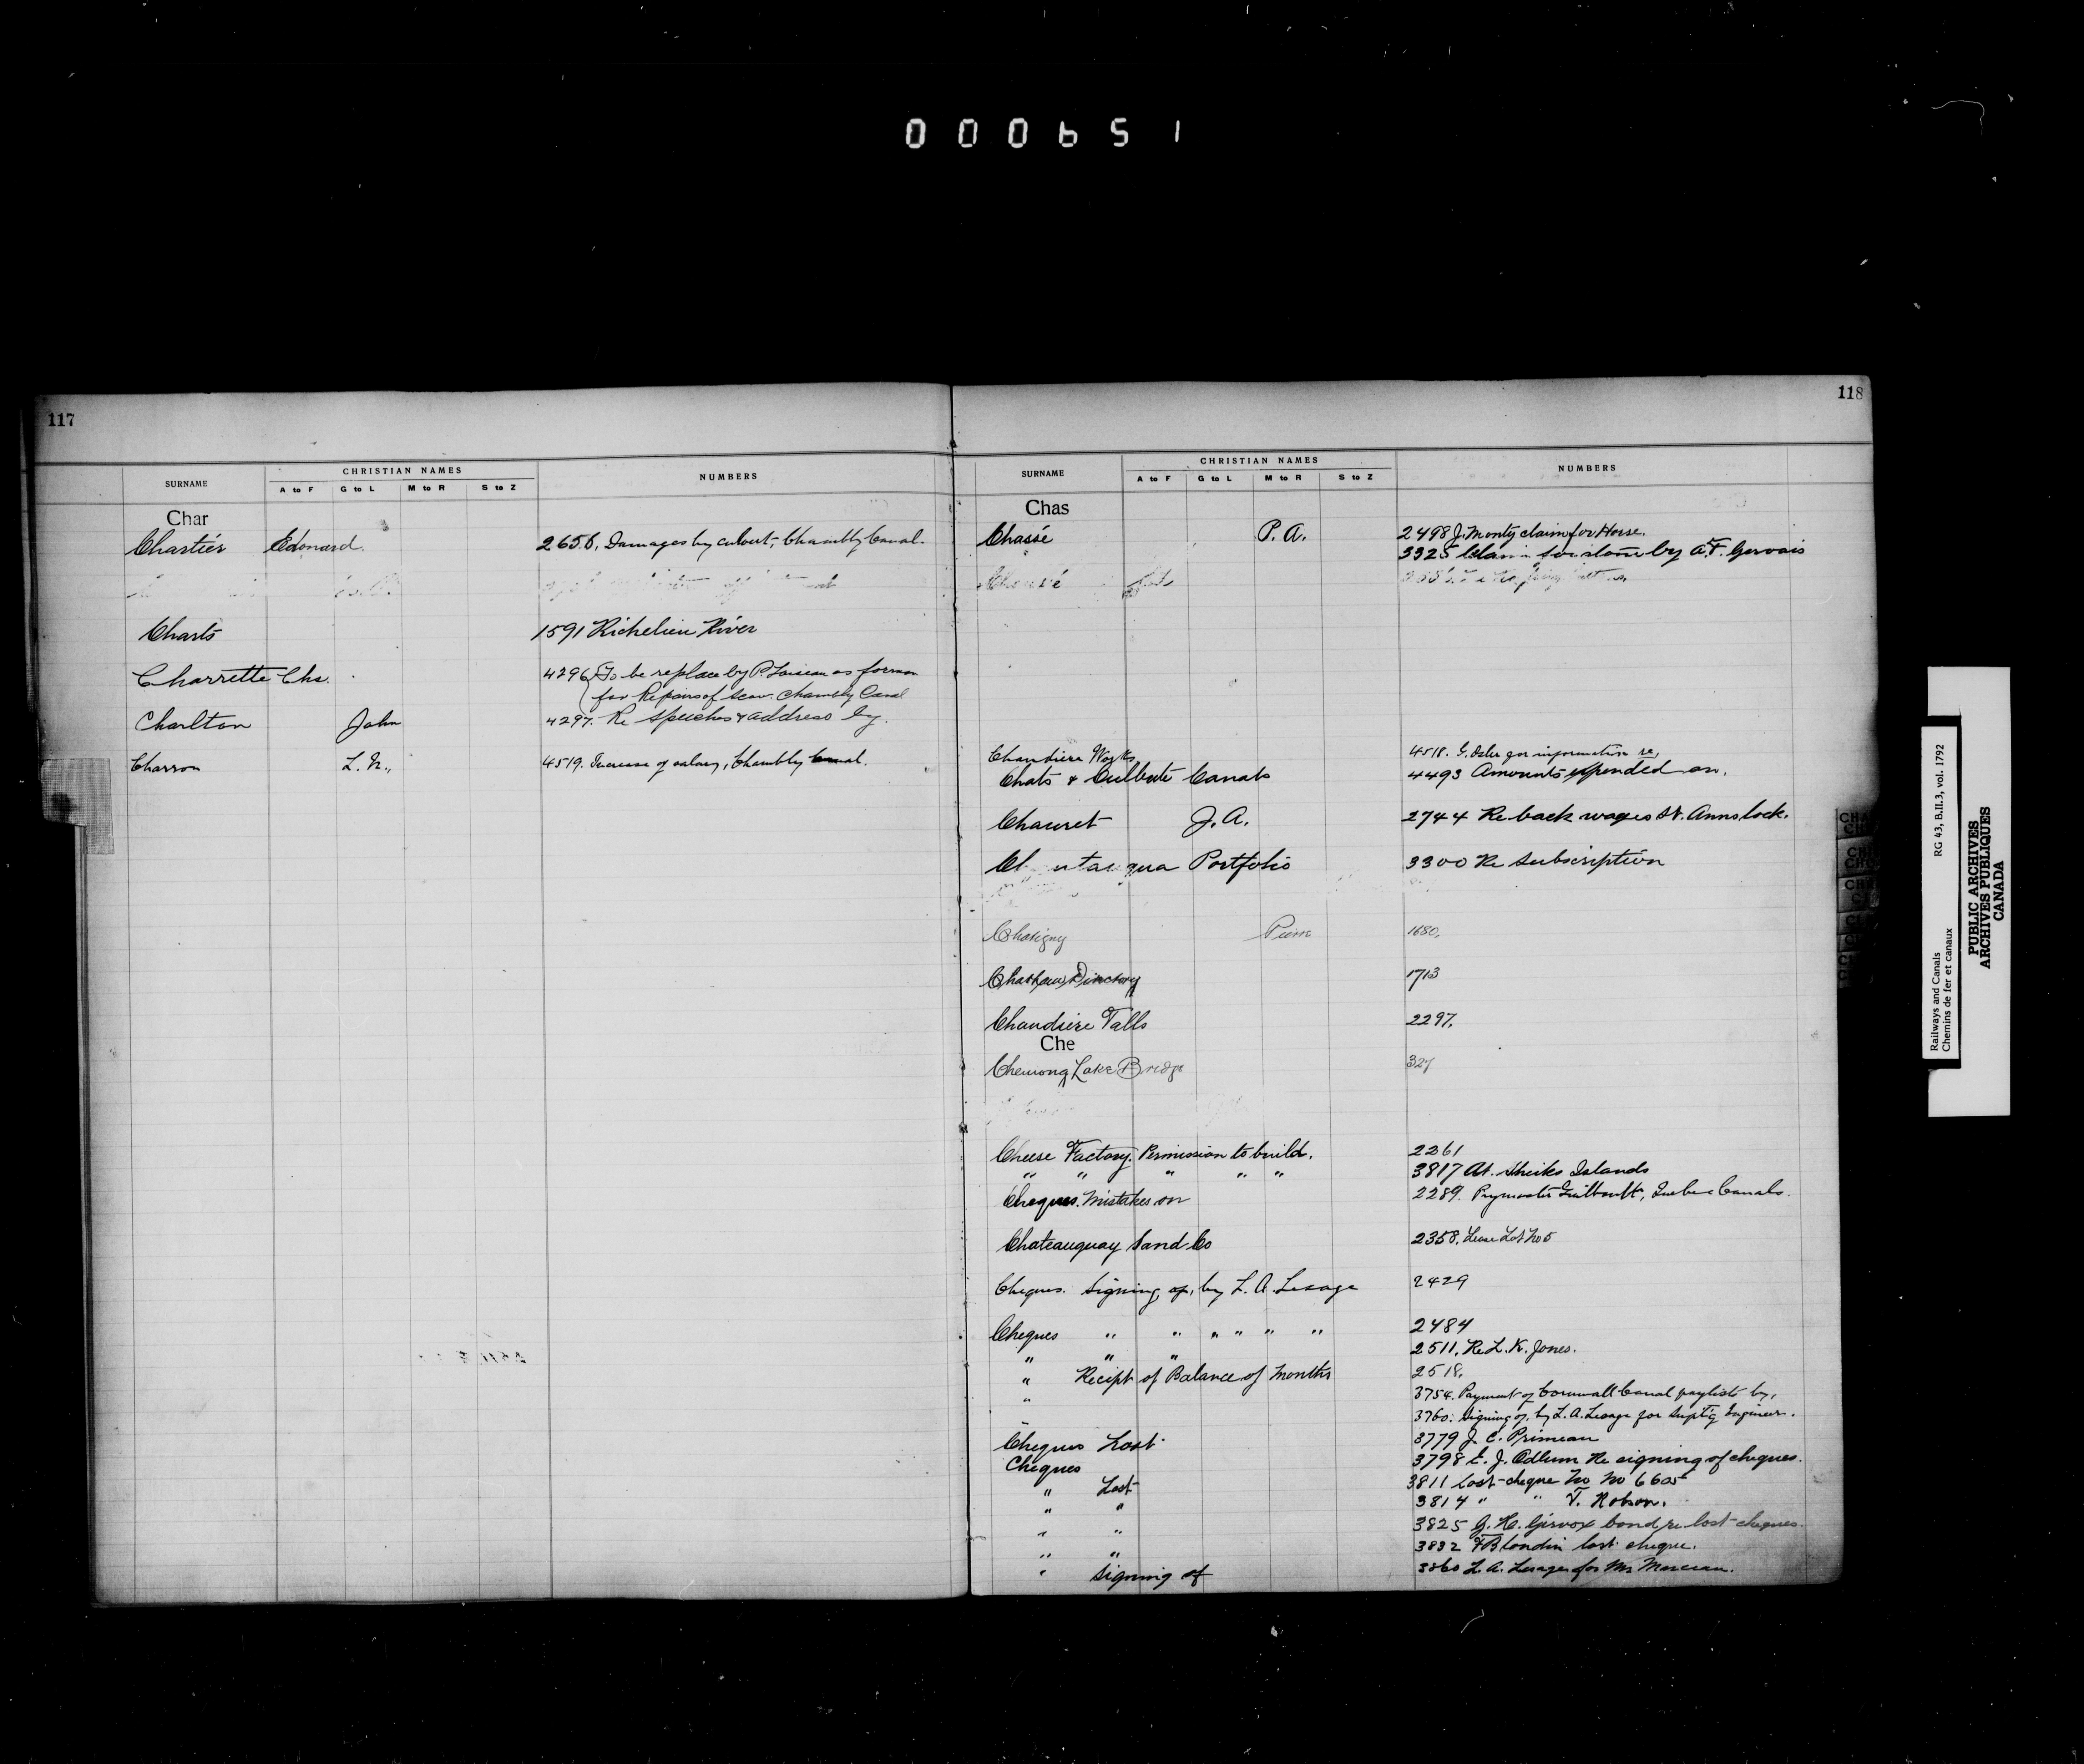 000651
117
SURNAME CHRISTIAN NAMES NUMBERS
A to F G to L M to R S to Z
Char
Chartiér Edouard. 2656. Damages by culvert, Chambly Canal.
Charts 1591 Richelieu River
Charrette Chs. 4296 To be replace by P. Loiseau as forman
for Repairs of scow. Chambly Canal
Charlton John 4297. Re speeches & address by.
Charron L. N., 4519. Increase of salary, Chambly Canal.
118
SURNAME CHRISTIAN NAMES NUMBERS
A to F G to L M to R S to Z
Chas
Chassé P. A. 2498 J. Monty claim for Horse.
3325 Claim for stone by A.F. Gervais
Chaudiere Works 4518. for information re,
Chats & Culbute Canals 4493 Amounts expended on.
Chauret J. A. 2744 Re back wages St. Anns lock.
Portfolio 3300 Re Subscription
Chatigny Pierre 1680.
Directory 1713
Chaudiere Falls 2297.
Che
Chemong Lake Bridge 327
Cheese Factory. Permission to build. 2261
" " " " " 3817 At. Sheiks Islands
Cheques. Mistakes on 2289. Paymaster Guilbault, Quebec Canals.
Chateauguay Sand Co 2358. Lease Lot No 5
Cheques. Signing of, by L. A. Lesage 2429
Cheques " " " " " " 2484
" " " 2511. Re L. K. Jones.
" Recipt of Balance of Months 2518.
" 3754. Payment of Cornwall Canal paylist by,
3760. Signing of, by L. A. Lesage for Supt'g Engineer.
Cheques Lost 3779 J. C. Primeau
Cheques 3798 J. Odlum Re signing of cheques.
" Lost 3811 Lost cheque No 6605
" " 3814 " " T. Robson.
" " 3825 G. H. bond re lost cheques.
" " 3832 F Blondin lost cheque.
" Signing of 3860 L. A. Lesage for Mr Marceau.
Railways and Canals RG 43, B.II.3, vol. 1792
Chemins de fer et canaux
PUBLIC ARCHIVES
ARCHIVES PUBLIQUES
CANADA